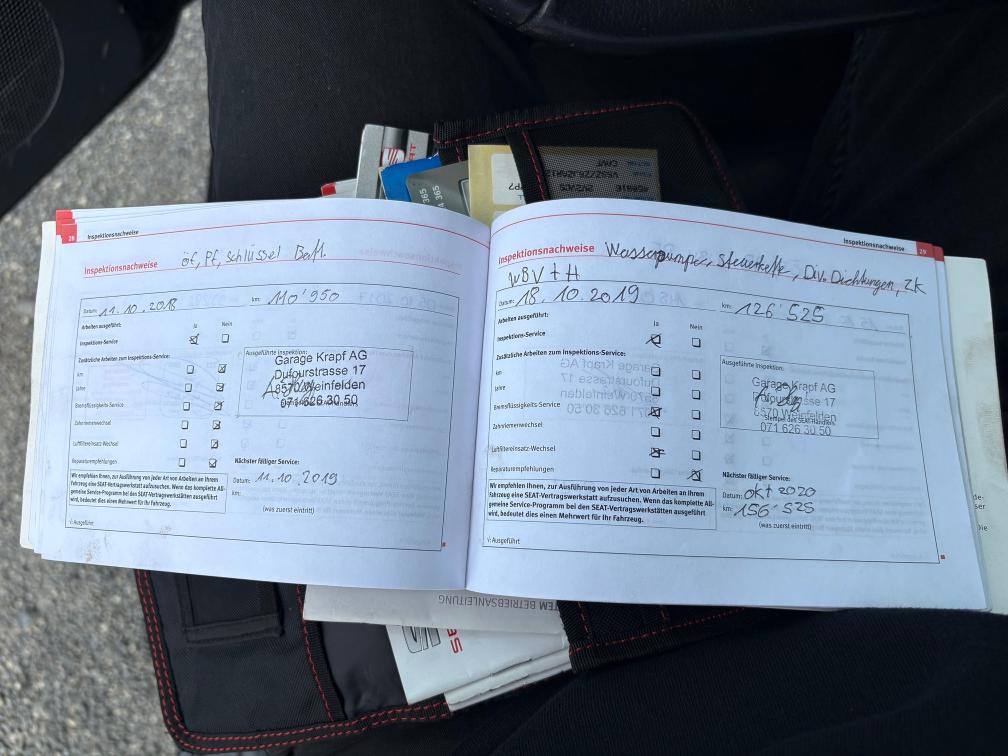 SEAT
365
28 Inspektionsnachweise
Inspektionsnachweise öf, Pf, Schlüssel Batt.
Datum: 11.10.2018 km: 110'950
Arbeiten ausgeführt: Ja Nein
Inspektions-Service
Zusätzliche Arbeiten zum Inspektions-Service:
km
Jahre
Bremsflüssigkeits-Service
Zahnriemenwechsel
Luftfiltereinsatz-Wechsel
Reparaturempfehlungen
Ausgeführte Inspektion:
Garage Krapf AG
Dufourstrasse 17
8570 Weinfelden
071 626 30 50
Nächster fälliger Service:
Datum: 11.10.2019
km:
(was zuerst eintritt)
Wir empfehlen Ihnen, zur Ausführung von jeder Art von Arbeiten an Ihrem
Fahrzeug eine SEAT-Vertragswerkstatt aufzusuchen. Wenn das komplette All-
gemeine Service-Programm bei den SEAT-Vertragswerkstätten ausgeführt
wird, bedeutet dies einen Mehrwert für Ihr Fahrzeug.
√: Ausgeführt
Inspektionsnachweise 29
Inspektionsnachweise Wasserpumpe, Steuerkette, Div. Dichtungen, ZK
WBV + H
Datum: 18.10.2019 km: 126'525
Arbeiten ausgeführt: Ja Nein
Inspektions-Service
Zusätzliche Arbeiten zum Inspektions-Service:
km
Jahre
Bremsflüssigkeits-Service
Zahnriemenwechsel
Luftfiltereinsatz-Wechsel
Reparaturempfehlungen
Ausgeführte Inspektion:
Garage Krapf AG
Dufourstrasse 17
8570 Weinfelden
Stempel des SEAT-Händlers
071 626 30 50
Nächster fälliger Service:
Datum: okt 2020
km: 156'525
(was zuerst eintritt)
Wir empfehlen Ihnen, zur Ausführung von jeder Art von Arbeiten an Ihrem
Fahrzeug eine SEAT-Vertragswerkstatt aufzusuchen. Wenn das komplette All-
gemeine Service-Programm bei den SEAT-Vertragswerkstätten ausgeführt
wird, bedeutet dies einen Mehrwert für Ihr Fahrzeug.
√: Ausgeführt
BETRIEBSANLEITUNG